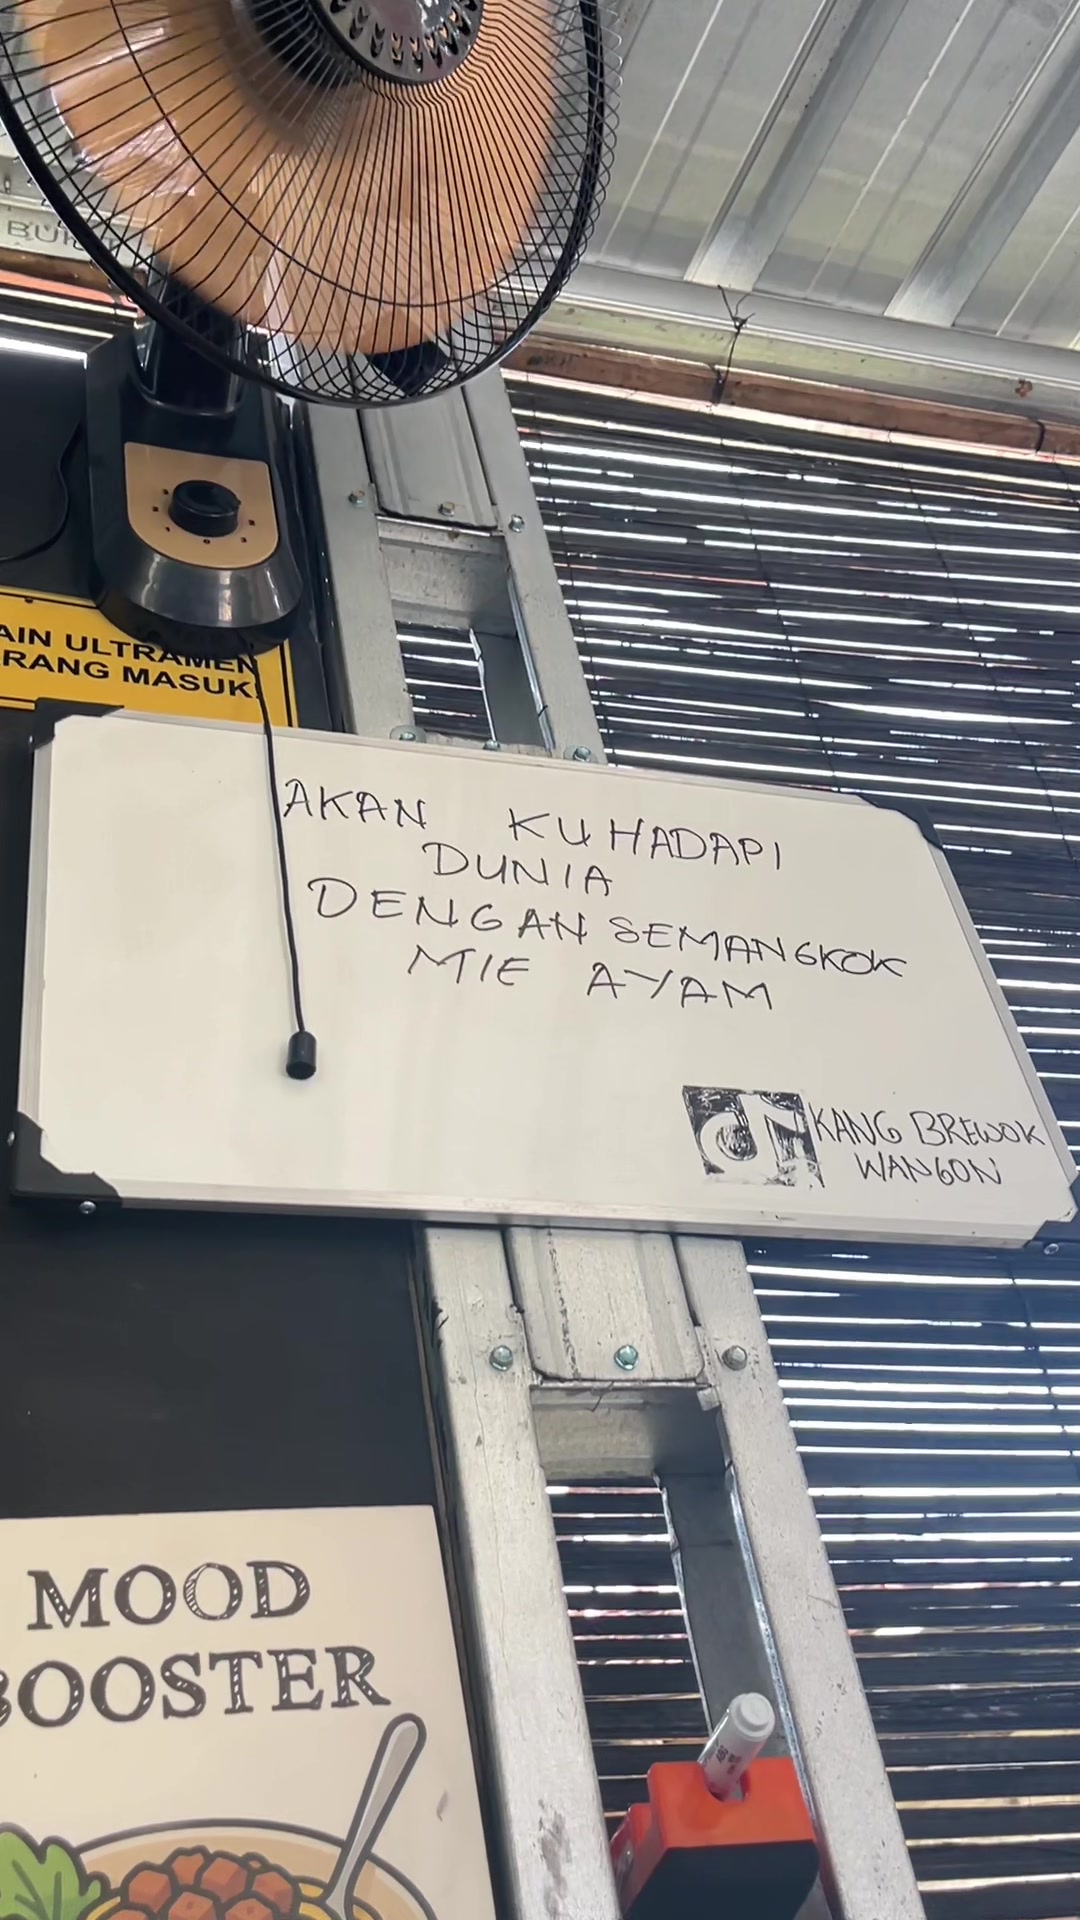 BUK
AIN ULTRAMEN
RANG MASUK
AKAN KUHADAPI
DUNIA
DENGAN SEMANGKOK
MIE AYAM
KANG BREWOK
WANGON
MOOD
BOOSTER